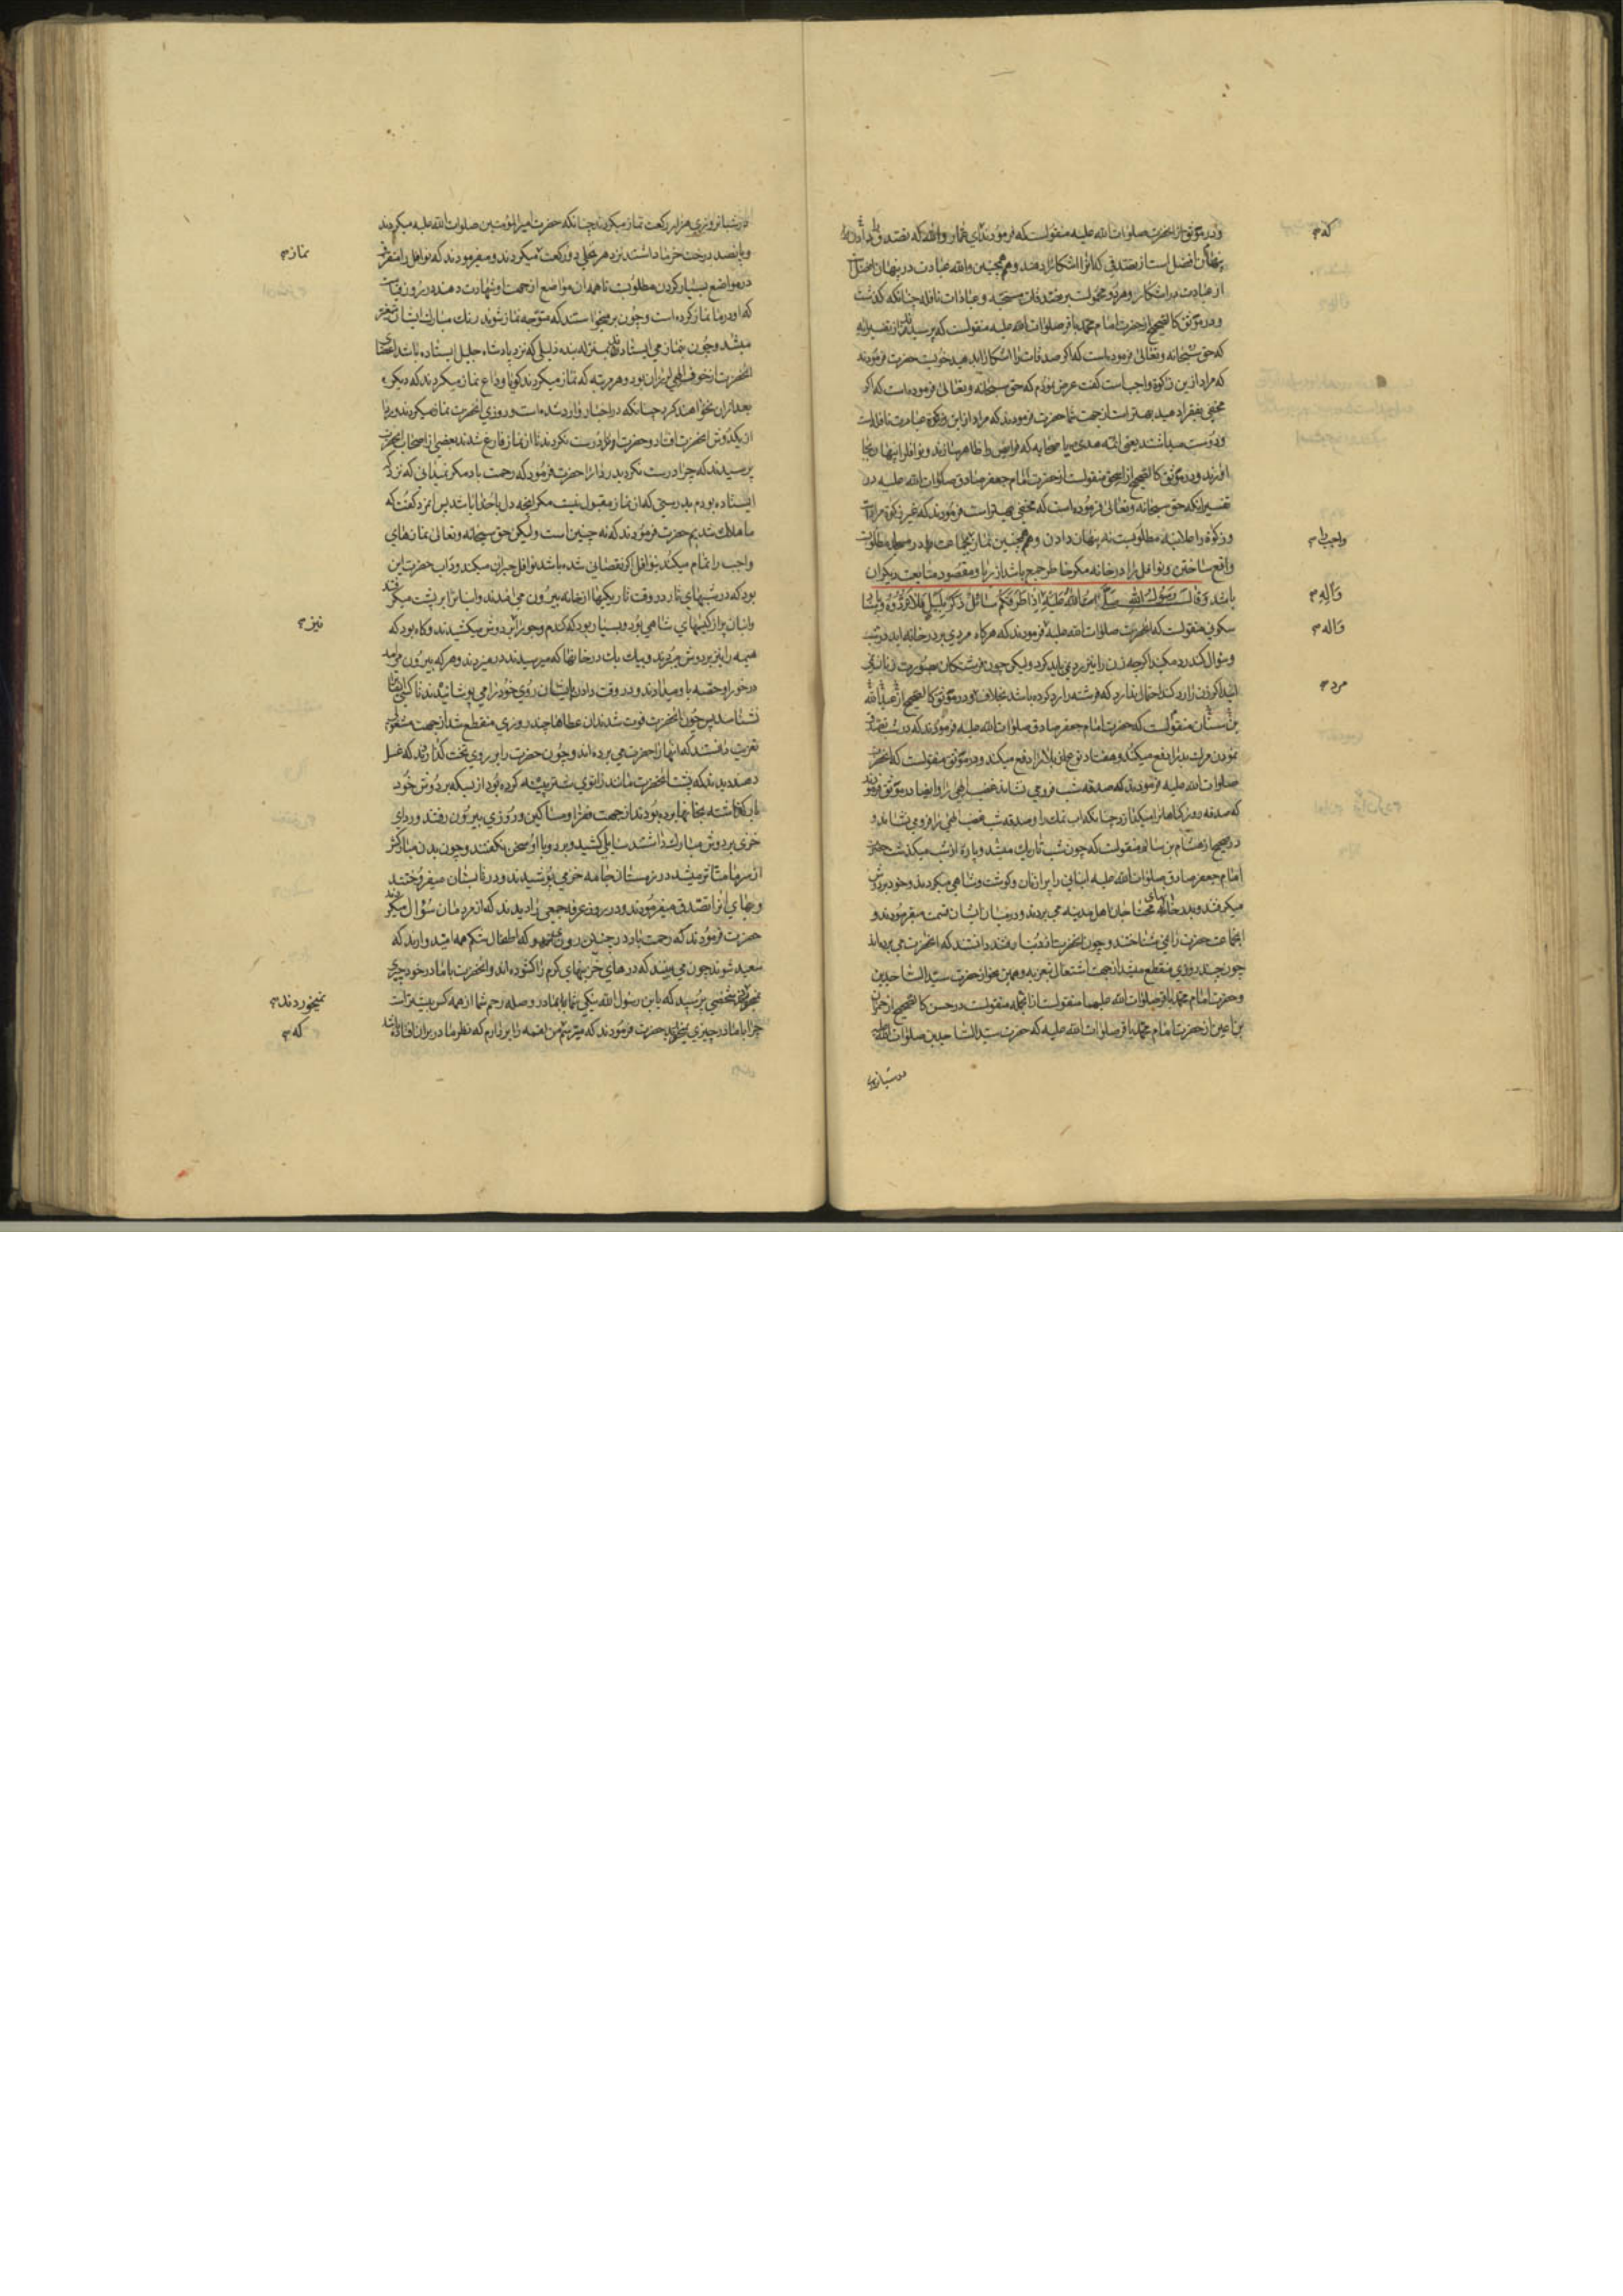 ودر موثق از انحضرت صلوات الله علیه منقولست که فرمودند ای عمار والله که تصدق
پنهان افضل است از تصدقی که انرا اشکارا دهند وهمچنین والله عبادت در پنهان افضل
از عبادت در اشکار وهردو محمولست بر صدقات مستحبه وعبادات نافله چنانکه گذشت
ودر موثق کالصحیح از حضرت امام محمد باقر صلوات الله علیه منقولست که پرسیدند از تفسیر آیه
که حق سبحانه وتعالی فرموده است که اگر صدقات را اشکارا بدهید خوبست حضرت فرمودند
که مراد ازین زکوة واجب است گفت عرض نمودم که حق سبحانه وتعالی فرموده است که اگر
مخفی بفقرا دهید بهتر است از جهت شما حضرت فرمودند که مراد ازاین زکوة نیست نافله است
ودوست میداشتند یعنی ائمه هدی یا صحابه که فرایض را ظاهر سازند ونوافل را پنهان بجا
اورند ودر موثق کالصحیح از اسحق منقولست از حضرت امام جعفر صادق صلوات الله علیه در
تفسیر انکه حق سبحانه وتعالی فرموده است که مخفی بهتر است فرمودند که غیر زکوة مراد است
وزکوة را علانیة مطلوبست نه پنهان دادن وهمچنین نماز بجماعت در مسجد مطلوبست
واقع ساختن ونوافل را در خانه مگر خاطر جمع باشد از ریا ومقصود متابعت دیگران
باشد وَقالَ رَسُولُ اللهِ صَلَّى اللهُ عَلَيْهِ اِذا طَرَقَكُمْ سائِلٌ ذَكَرٌ بِلَيْلٍ فَلا تَرُدُّوهُ
سکونی منقولست که انحضرت صلوات الله علیه فرمودند که هرگاه مردی بر در خانه اید در شب
وسؤال کند رد مکنید اگرچه زن را نیز رد نمی باید کرد ولیکن چون فرشتگان بصورت زنان نمی
ایند اگر زن را رد کند احتمال ندارد که فرشته را رد کرده باشد بخلاف مرد ودر موثق کالصحیح از عبدالله
بن سنان منقولست که حضرت امام جعفر صادق صلوات الله علیه فرمودند که در شب تصدق
نمودن مرگ بد را دفع میکند وهفتاد نوع از بلا را دفع میکند ودر موثق منقولست که انحضرت
صلوات الله علیه فرمودند که صدقه شب فرو می نشاند غضب الهی را وایضا در موثق فرمودند
که صدقه روز گناهانرا میگدازد چنانکه اب نمک را وصدقه شب غضب الهی را فرو می نشاند و
در صحیح از هشام بن سالم منقولست که چون شب تاریک میشد وپاره از شب میگذشت حضرت
امام جعفر صادق صلوات الله علیه انبانی را پر از نان وگوشت وشاهی میکردند وخود بر دوش
میگرفتند وبدر خانهای محتاجان اهل مدینه می بردند ودر میان ایشان قسمت میفرمودند و
انجماعت حضرت را نمی شناختند وچون انحضرت از دنیا رفتند دانستند که انحضرت می برده اند
چون چند روزی منقطع میشد از جهت اشتغال تعزیه وهمین نحو از حضرت سید الساجدین
وحضرت امام محمد باقر صلوات الله علیهما منقولست از انجمله منقولست در حسن کالصحیح از حمران
بن اعین از حضرت امام محمد باقر صلوات الله علیه که حضرت سید الساجدین صلوات الله علیه
در شبانروزی
که م
واجب م
وآله م
واله م
مرد م
در شبانروزی هزار رکعت نماز میکردند چنانکه حضرت امیر المؤمنین صلوات الله علیه میکردند
وپانصد درخت خرما داشتند نزد هر نخلی دو رکعت میکردند ومیفرمودند که نوافل را متفرق
در مواضع بسیار کردن مطلوبست تا همه ان مواضع از جهت او شهادت دهند در روز قیامت
که او در ما نماز کرده است وچون بر میخواستند که متوجه نماز شوند رنگ مبارک ایشان متغیر
میشد وچون بنماز می ایستادند بمنزله بنده ذلیلی که نزد پادشاه جلیل ایستاده باشد اعضای
انحضرت از خوف الهی لرزان بود وهر مرتبه که نماز میکردند گویا وداع نماز میکردند که دیگر
بعد ازان نخواهند کرد چنانکه در اخبار وارد شده است وروزی انحضرت نماز میکردند وردا
از یکدوش انحضرت افتاد وحضرت او را درست نکردند تا از نماز فارغ شدند بعضی از اصحاب انحضرت
پرسیدند که چرا درست نکردید ردا را حضرت فرمود که رحمت باد مگر نمیدانی که نزد که
ایستاده بودم بدرستی که از نماز مقبول نیست مگر انچه دل با خدا باشد پس انمرد گفت که
ما هلاک شدیم حضرت فرمودند که نه چنین است ولیکن حق سبحانه وتعالی نمازهای
واجب را تمام میکند بنوافل اگر نقصانی شده باشد نوافل جبران میکند وداب حضرت این
بود که در شبهای تار در وقت تاریکیها از خانه بیرون می امدند وانبانرا بر پشت میگرفتند
وانبان پر از کیسهای شاهی بود وبسیار بود که گندم وجو را بر دوش میکشیدند وگاه بود که
هیمه را بر دوش میبردند وبیک یک در خانها که میرسیدند در میزدند وهر که بیرون می امد
در خور او حصه باو میدادند ودر وقت دادن بایشان روی خود را می پوشانیدند تا کسی ایشانرا
نشناسد پس چون انحضرت فوت شدند ان عطاها چند روزی منقطع شد از جهت مشغولی
تعزیت دانستند که انها را حضرت می برده اند وچون حضرت را بر روی تخت گذاردند که غسل
دهند دیدند که پشت انحضرت مانند زانوی شتر پینه کرده بود از بسکه بر دوش خود
بار گذاشته بخانها برده بودند از جهت فقرا ومساکین وروزی بیرون رفتند وردای
خزی بر دوش مبارک داشتند سایلی کشید وبرد وبا او سخن نگفتند وچون بدن مبارکش
از سرما متاثر میشد در زمستان جامه خز می پوشیدند ودر تابستان میفروختند
وبهای انرا تصدق میفرمودند ودر روز عرفه جمعی را دیدند که از مردمان سؤال میکردند
حضرت فرمودند که رحمت باد در چنین روزی که اطفال شکم همه امید وارند که
سعید شوند چون می بینند که درهای خزینهای کرم را گشوده اند وانحضرت با مادر خود چیزی
نمیخوردند شخصی پرسید که یابن رسول الله نیکی شما با مادر وصله رحم شما از همه کس بیشتر است
چرا با مادر چیزی نمیخورید حضرت فرمودند که میترسم من لقمه را بردارم که نظر مادر بران افتاده باشد
نماز م
نیز م
نمیخوردند م
که م